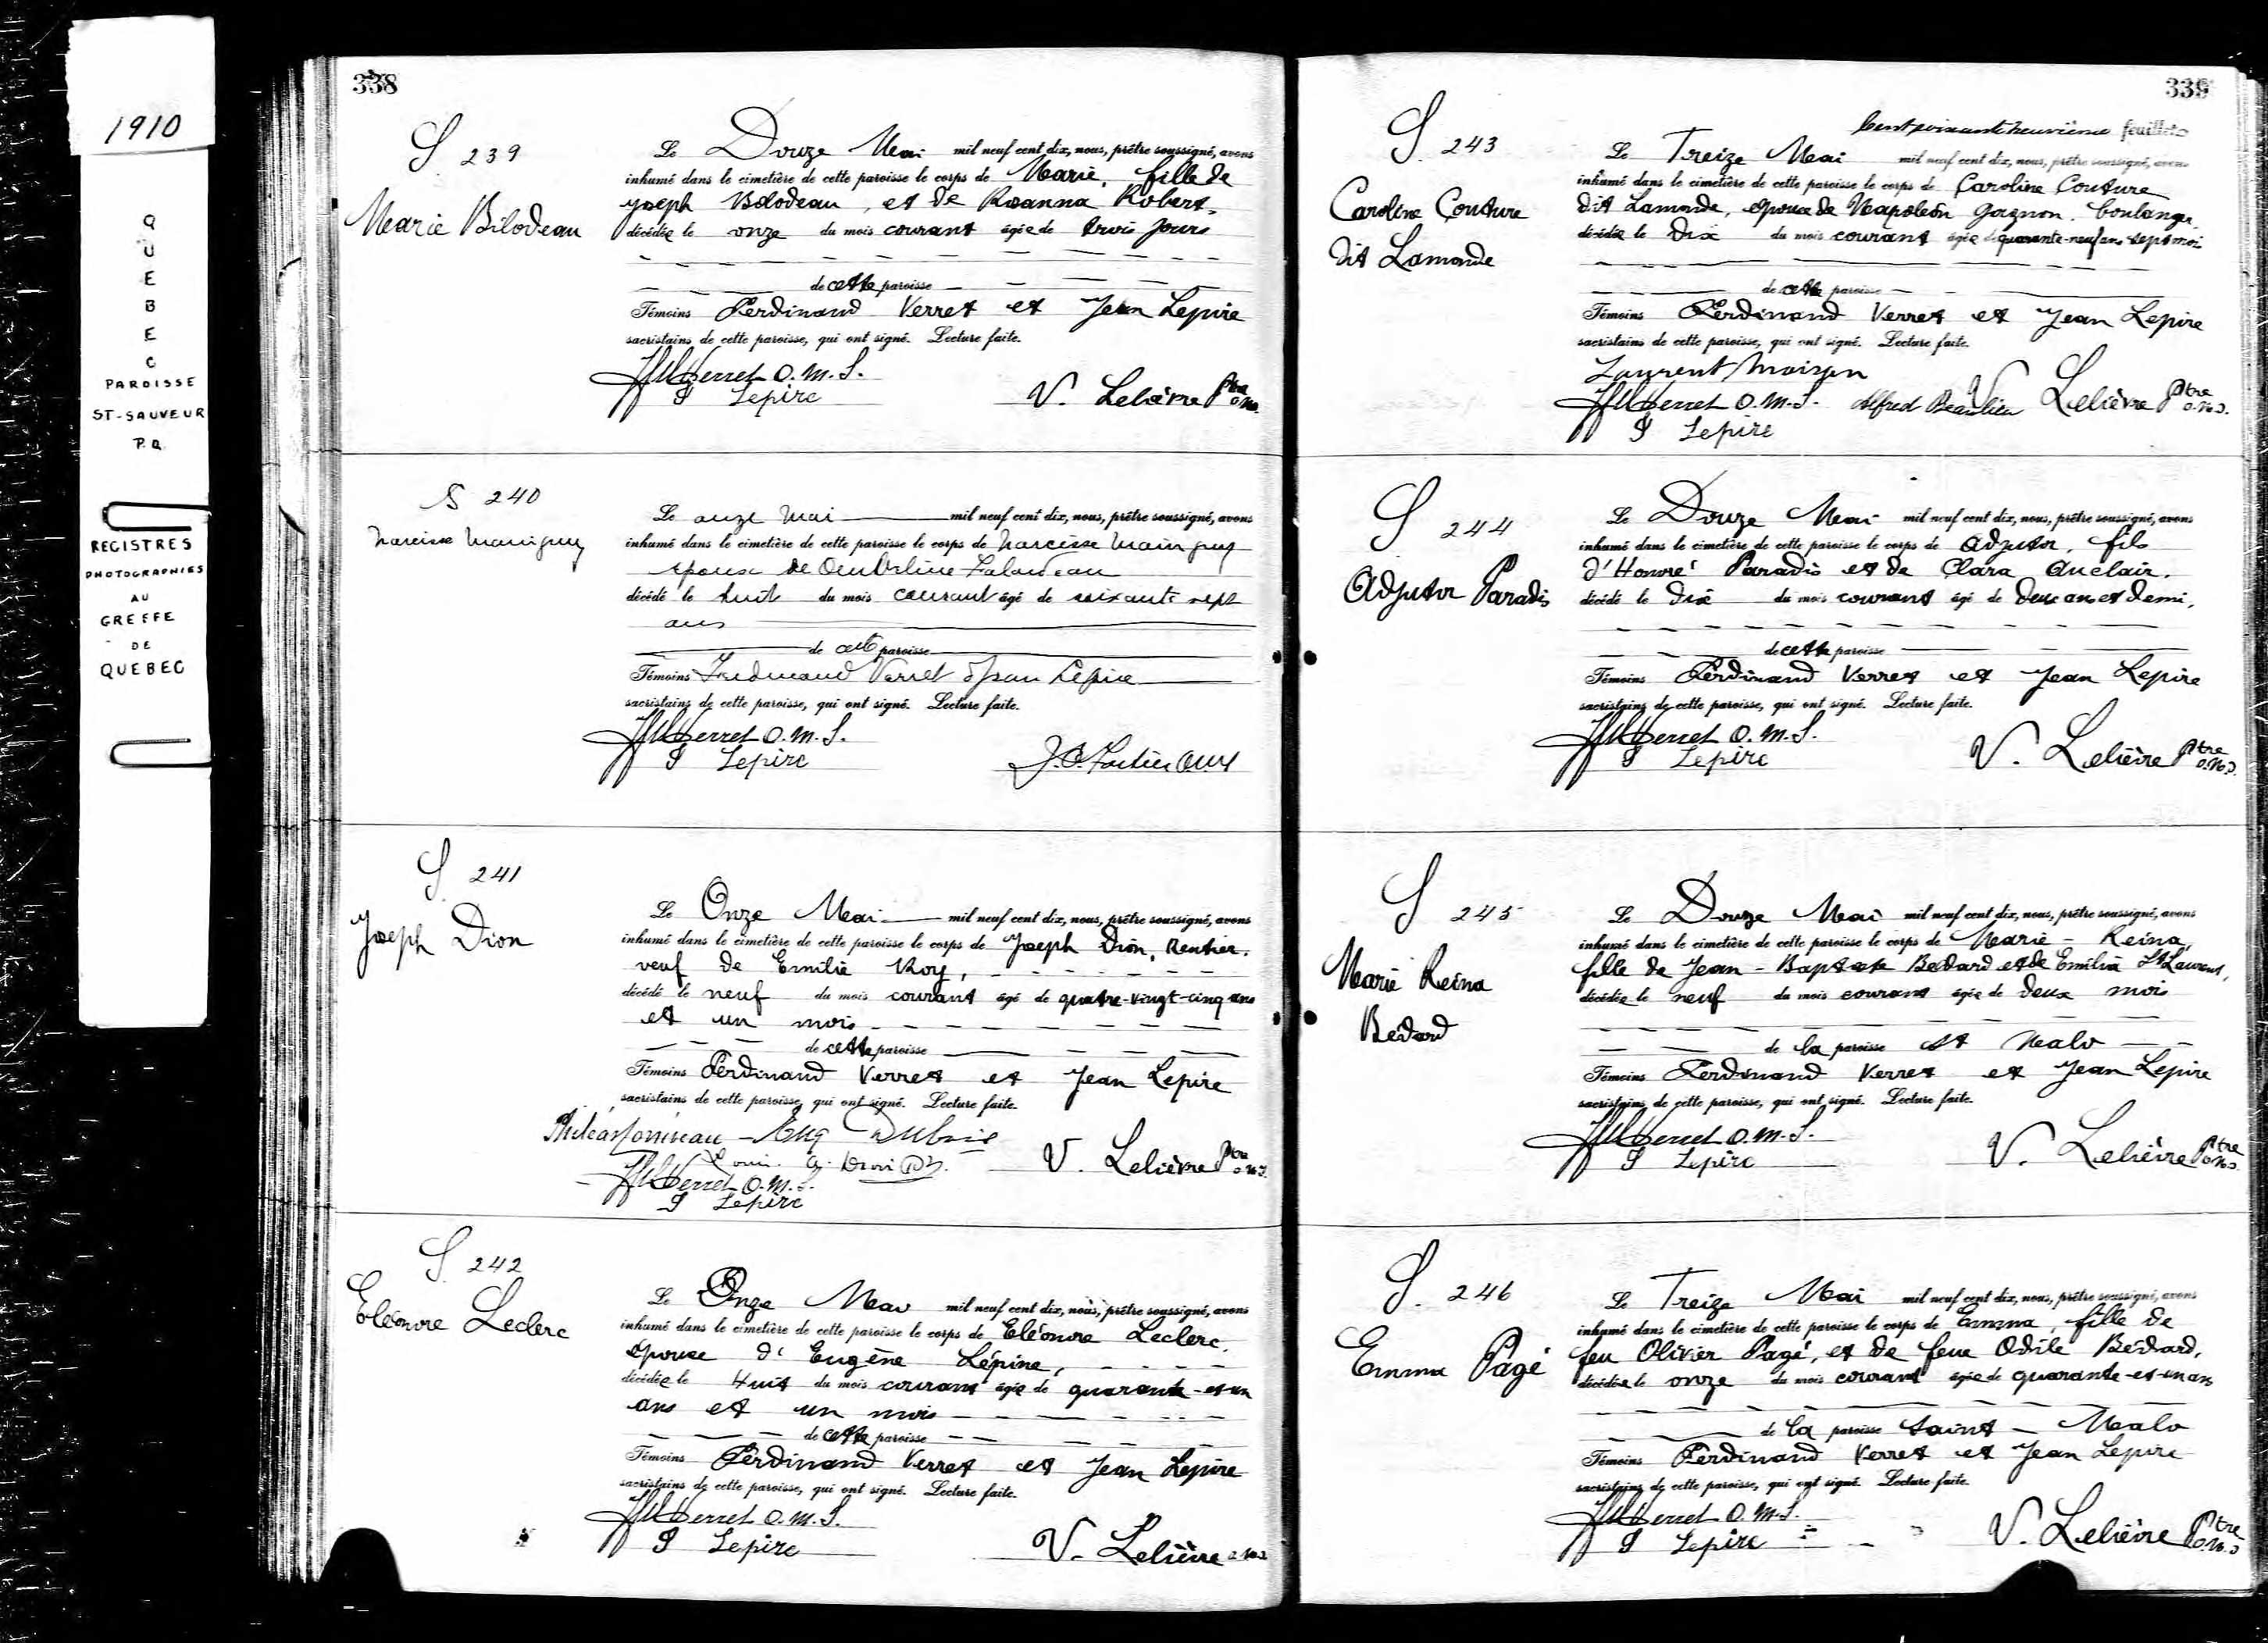 1910
QUEBEC
PAROISSE
ST-SAUVEUR
P.Q.
REGISTRES
PHOTOGRAPHIES
AU
GREFFE
DE
QUEBEC
338
S 239
Marie Bilodeau
Le Douze Mai mil neuf cent dix, nous, prêtre soussigné, avons
inhumé dans le cimetière de cette paroisse le corps de Marie, fille de
Joseph Bilodeau, et de Roanna Robert,
décédée le onze du mois courant âgée de trois jours
de cette paroisse
Témoins Ferdinand Verret et Jean Lepire
sacristains de cette paroisse, qui ont signé. Lecture faite.
Verret O.M.I.
J Lepire V. Lelièvre Ptre o.m.i.
S 240
Narcisse Mainguy
Le onze mai mil neuf cent dix, nous, prêtre soussigné, avons
inhumé dans le cimetière de cette paroisse le corps de Narcisse Mainguy
epoux de
décédé le huit du mois courant âgé de soixante sept
ans
de cette paroisse
Témoins Ferdinand Verret & Jean Lepire
sacristains de cette paroisse, qui ont signé. Lecture faite.
Verret O.M.I.
J Lepire
S 241
Joseph Dion
Le Onze Mai mil neuf cent dix, nous, prêtre soussigné, avons
inhumé dans le cimetière de cette paroisse le corps de Joseph Dion, Rentier.
veuf de Emilie Roy,
décédé le neuf du mois courant âgé de quatre-vingt-cinq ans
et un mois
de cette paroisse
Témoins Ferdinand Verret et Jean Lepire
sacristains de cette paroisse, qui ont signé. Lecture faite.
V. Lelièvre Ptre o.m.i.
Verret O.M.I.
J Lepire
S. 242
Eléonore Leclerc
Le Onze Mai mil neuf cent dix, nous, prêtre soussigné, avons
inhumé dans le cimetière de cette paroisse le corps de Eléonore Leclerc,
épouse d'Eugène Lépine,
décédée le Huit du mois courant âgée de quarante-et-un
ans et un mois
de cette paroisse
Témoins Ferdinand Verret et Jean Lepire
sacristains de cette paroisse, qui ont signé. Lecture faite.
Verret O.M.I.
J Lepire V. Lelièvre o.m.i.
339
feuillet
S. 243
Caroline Couture
dit Lamonde
Le Treize Mai mil neuf cent dix, nous, prêtre soussigné, avons
inhumé dans le cimetière de cette paroisse le corps de Caroline Couture
dit Lamonde, epouse de Napoléon Gagnon. boulanger
décédée le Dix du mois courant âgée de quarante-neuf ans sept mois
de cette paroisse
Témoins Ferdinand Verret et Jean Lepire
sacristains de cette paroisse, qui ont signé. Lecture faite.
Laurent Moisan
Verret O.M.I. Alfred Beaulieu V. Lelièvre Ptre o.m.i.
J Lepire
S 244
Adjutor Paradis
Le Douze Mai mil neuf cent dix, nous, prêtre soussigné, avons
inhumé dans le cimetière de cette paroisse le corps de Adjutor, fils
d'Honoré Paradis et de Clara Auclair.
décédé le Dix du mois courant âgé de deux ans et demi,
de cette paroisse
Témoins Ferdinand Verret et Jean Lepire
sacristains de cette paroisse, qui ont signé. Lecture faite.
Verret O.M.I.
J Lepire V. Lelièvre Ptre o.m.i.
S 245
Marie Reina
Bédard
Le Douze Mai mil neuf cent dix, nous, prêtre soussigné, avons
inhumé dans le cimetière de cette paroisse le corps de Marie-Reina,
fille de Jean-Baptiste Bedard et de Emilia St Laurent,
décédée le neuf du mois courant âgée de deux mois
de la paroisse St Malo
Témoins Ferdinand Verret et Jean Lepire
sacristains de cette paroisse, qui ont signé. Lecture faite.
Verret O.M.I.
J Lepire V. Lelièvre Ptre o.m.i.
S. 246
Emma Pagé
Le Treize Mai mil neuf cent dix, nous, prêtre soussigné, avons
inhumé dans le cimetière de cette paroisse le corps de Emma, fille de
feu Olivier Pagé, et de feue Odile Bédard,
décédée le onze du mois courant âgée de quarante-et-un ans
de la paroisse Saint-Malo
Témoins Ferdinand Verret et Jean Lepire
sacristains de cette paroisse, qui ont signé. Lecture faite.
Verret O.M.I.
J Lepire V. Lelièvre Ptre o.m.i.